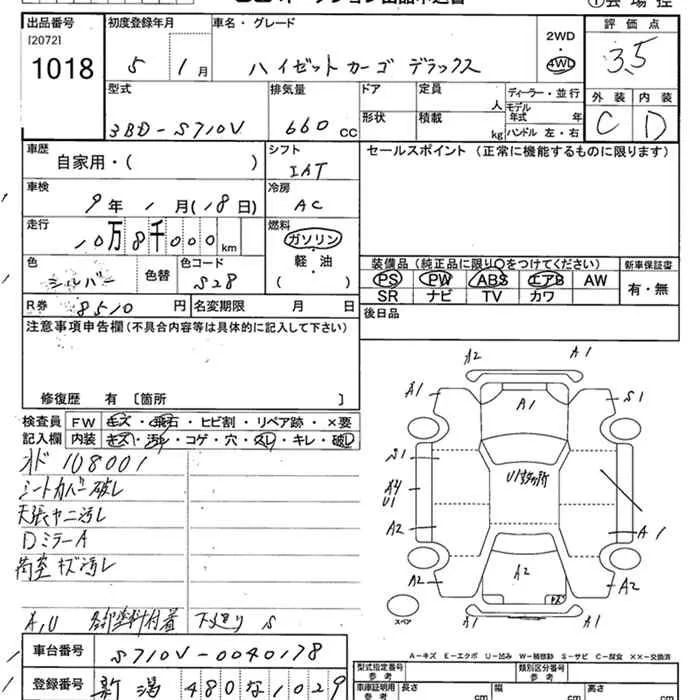 出品番号 初度登録年月 車名・グレード 評価点
[2072] 5 1月 ハイゼットカーゴ デラックス 2WD・4WD 3.5
1018
外装 内装
C D
型式 排気量 ドア 定員 人 ディーラー・並行
3BD-S710V 660 CC 形状 積載 kg モデル年式 年
ハンドル 左・右
車歴 自家用・( ) シフト IAT
セールスポイント(正常に機能するものに限ります)
車検 9年 1月(18日) 冷房 AC
走行 10万8千000km 燃料 ガソリン
軽・油
( )
色 シルバー 色替 色コード S28
装備品(純正品に限り○をつけてください) 新車保証書
PS PW ABS エアB AW 有・無
SR ナビ TV カワ
R券 8510円 名変期限 月 日
後日品
注意事項申告欄(不具合内容等は具体的に記入して下さい)
修復歴 有〔箇所 〕
検査員 FW キズ・飛石・ヒビ割・リペア跡・×要
記入欄 内装 キズ・汚れ・コゲ・穴・スレ・キレ・破レ
オド 108001
シートカバー破レ
天張ヤニ汚レ
DミラーA
荷室キズ汚レ
A,U 各部塗料付着 下廻り S
A2 A1
A1 A1 S1
S1
U1多数ヶ所
A4
U1
A2 A1
A2 A2 A2
キズ
A1 A1
スペア
A-キズ E-エクボ U-凹み W-補修跡 S-サビ C-腐食 ××-交換済
車台番号 S710V-0040178
登録番号 新潟 480 な 1029
型式指定番号 参考 類別区分番号 参考
車庫証明用 参考 長さ cm 幅 cm 高さ cm